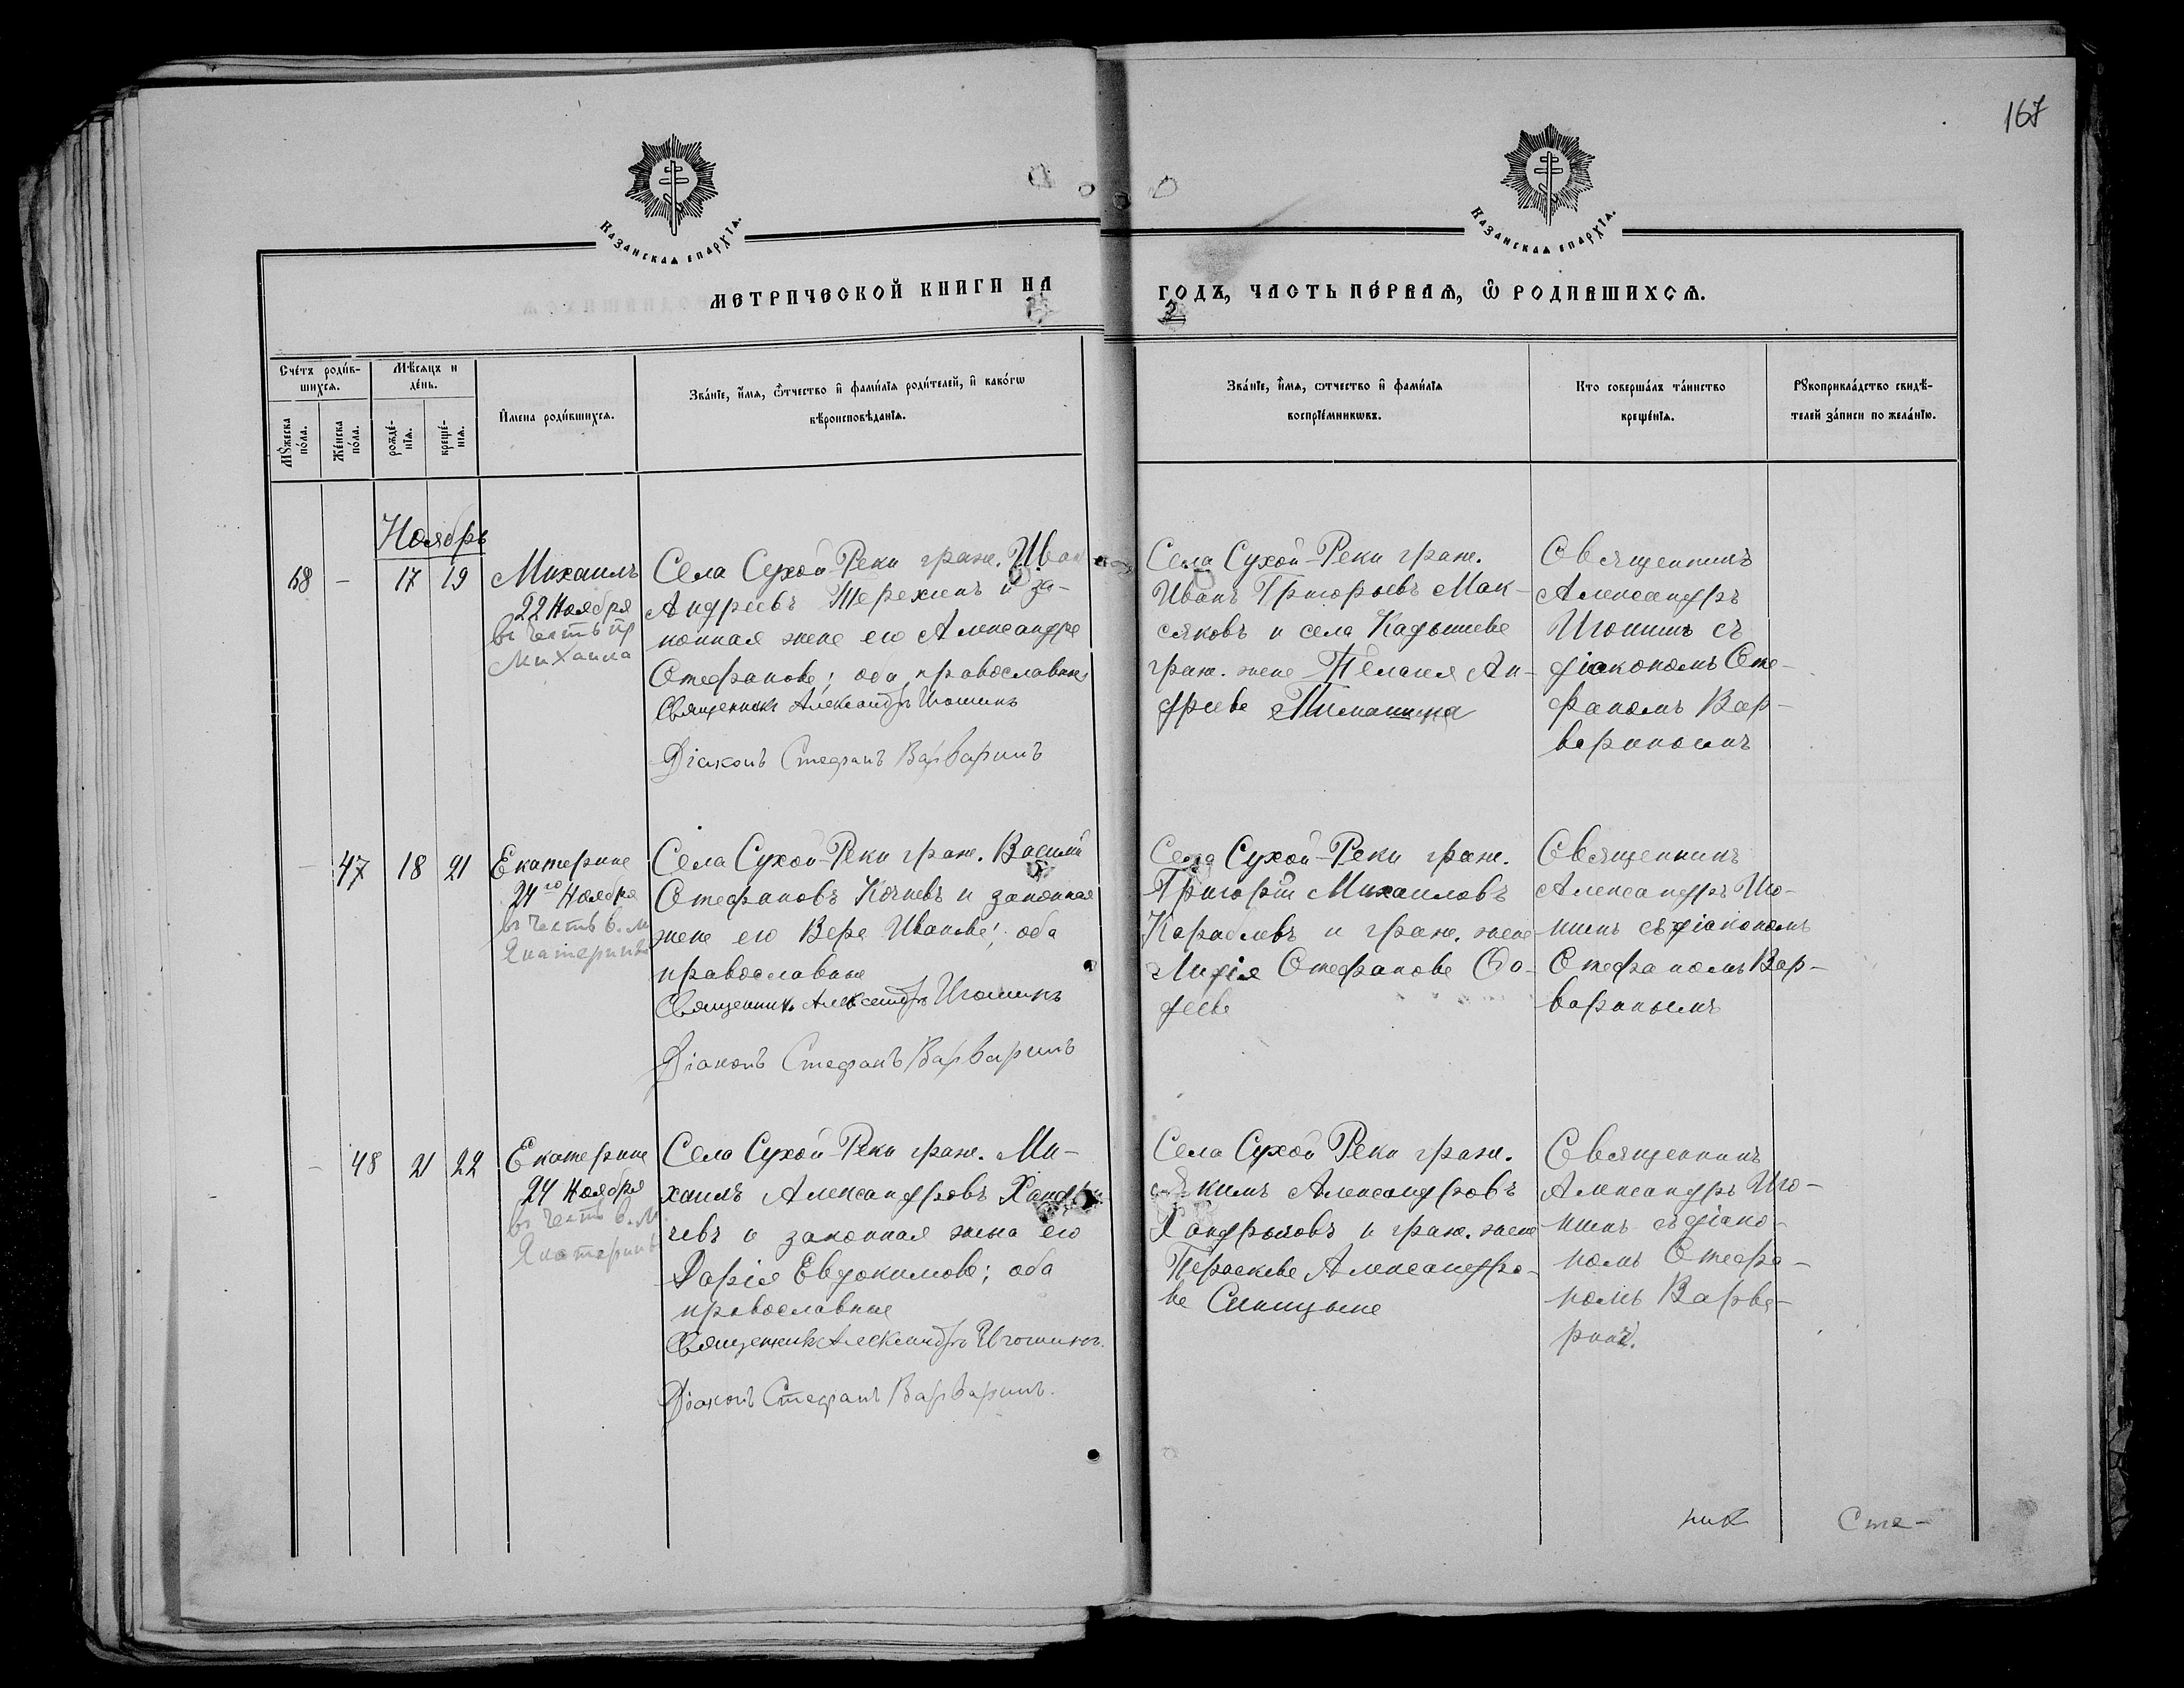 167
КАЗАНСКАЯ ЕПАРХІЯ.
КАЗАНСКАЯ ЕПАРХІЯ.
МЕТРИЧЕСКОЙ КНИГИ НА
ГОДЪ, ЧАСТЬ ПЕРВАЯ, Ѽ РОДИВШИХСЯ.
Сче́тъ роди́в-
шихсѧ.
Мѣ́сяцъ и
де́нь.
Мꙋ́жеска
по́ла.
Же́нска
по́ла.
рожде́-
нїѧ.
креще́-
нїѧ.
И҆мена роди́вшихсѧ.
Зва́нїе, и҆́мѧ, ѻ҆́тчество и҆ фами́лїѧ роди́телей, и҆ како́гѡ
вѣроисповѣ́данїѧ.
Зва́нїе, и҆́мѧ, ѻ҆́тчество и҆ фами́лїѧ
воспрїе́мникѡвъ.
Кто соверша́лъ та́инство
креще́нїѧ.
Рꙋкоприкла́дство свидѣ́-
телей за́писи по жела́нїю.
Ноябрь
68 - 17 19
Михаилъ
22 Ноября
въ честь
Михаила
Села Сухой-Реки граж. Иван
Андреевъ Терехинъ и за-
конная жена его Александра
Стефанова; оба православные
Священникъ Александръ Игошинъ
Діаконъ Стефанъ Варваринъ
Села Сухой-Реки граж.
Иванъ Григорьевъ Мак-
саковъ и села Кадышева
граж. жена Пелагея Ан-
дреева
Священникъ
Александръ
Игошинъ съ
діакономъ Сте-
фаномъ Вар-
вариномъ
- 47 18 21
Екатерина
24го Ноября
въ честь в. м
Екатерины
Села Сухой-Реки граж. Василій
Стефановъ Кочневъ и законная
жена его Вера Иванова; оба
православные
Священникъ Александръ Игошинъ
Діаконъ Стефанъ Варваринъ
Села Сухой-Реки граж.
Григорій Михаиловъ
Караблевъ и граж. жена
Лидія Стефанова Фа-
деева
Священникъ
Александръ Иго-
шинъ съ діакономъ
Стефаномъ Вар-
вариным
- 48 21 22
Екатерина
24 Ноября
въ честь в. м
Екатерины
Села Сухой-Реки граж. Ми-
хаилъ Александровъ Хандры-
чевъ и законная жена его
Дарія Евдокимова; оба
православные
Священникъ Александръ Игошинъ.
Діаконъ Стефанъ Варваринъ.
Села Сухой Реки граж.
Александровъ
и граж. жена
Параскева Александро-
ва Синицына
Священникъ
Александръ Иго-
шинъ съ діако-
номъ Стефа-
номъ Варва-
ринъ.
ник
Сте-